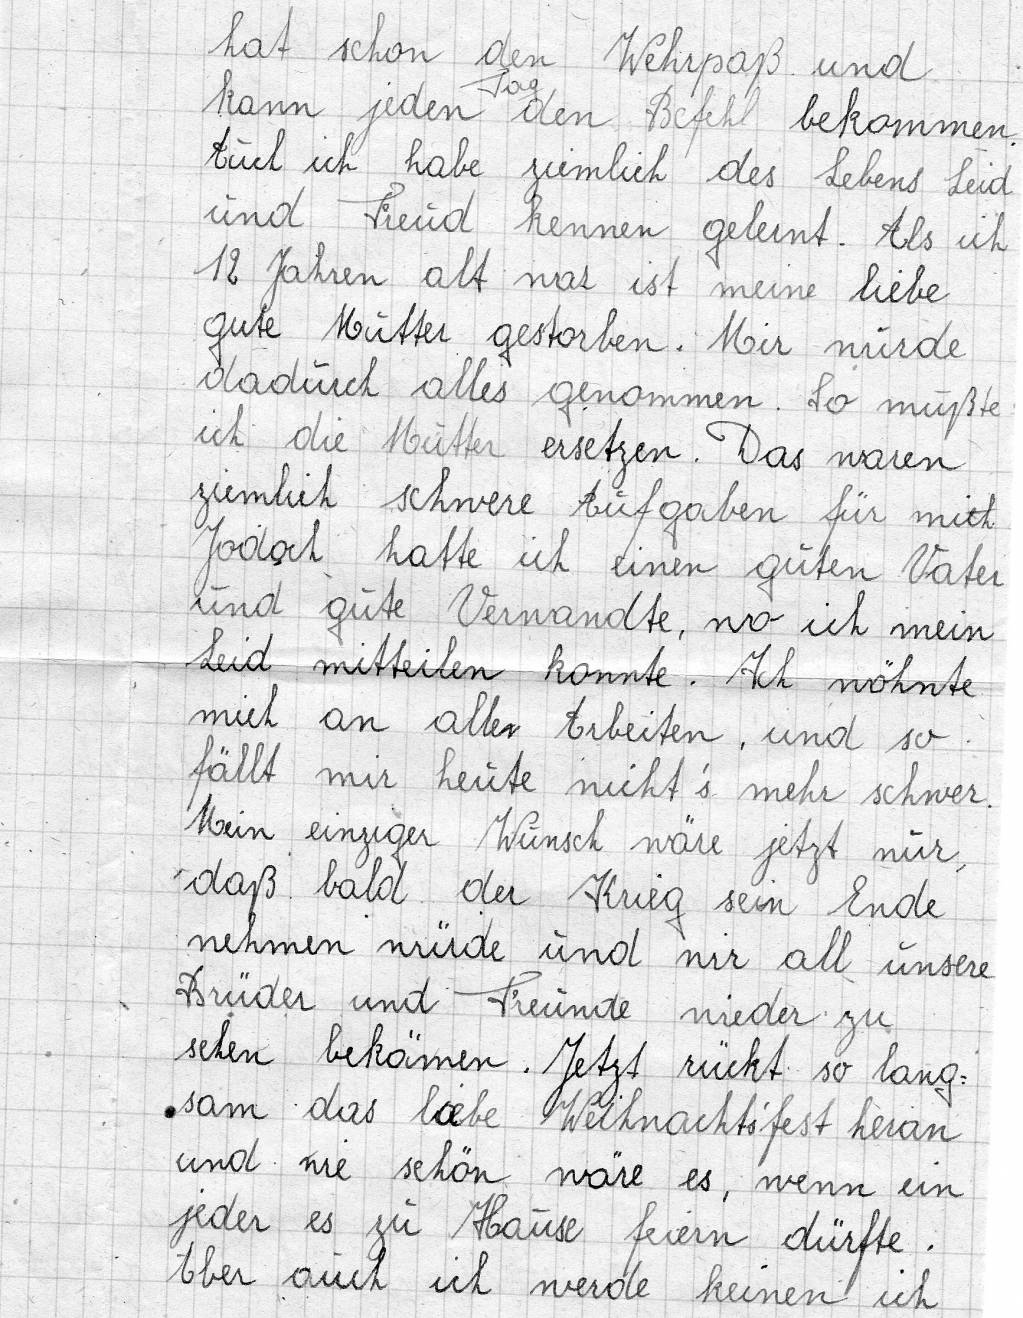 hat schon den Wehrpaß und
kann jeden Tag den Befehl bekommen.
Auch ich habe ziemlich des Lebens Leid
und Freud kennen gelernt. Als ich
12 Jahren alt war ist meine liebe
gute Mutter gestorben. Mir wurde
dadurch alles genommen. So mußte
ich die Mutter ersetzen. Das waren
ziemlich schwere Aufgaben für mich
Jedoch hatte ich einen guten Vater
und gute Verwandte, wo ich mein
Leid mitteilen konnte. Ich wöhnte
mich an allen Arbeiten, und so
fällt mir heute nicht's mehr schwer.
Mein einziger Wunsch wäre jetzt nur,
daß bald der Krieg sein Ende
nehmen würde und wir all unsere
Brüder und Freunde wieder zu
sehen bekämen. Jetzt rückt so lang=
sam das liebe Weihnachtsfest heran
und wie schön wäre es, wenn ein
jeder es zu Hause feiern dürfte.
Aber auch ich werde keinen ich